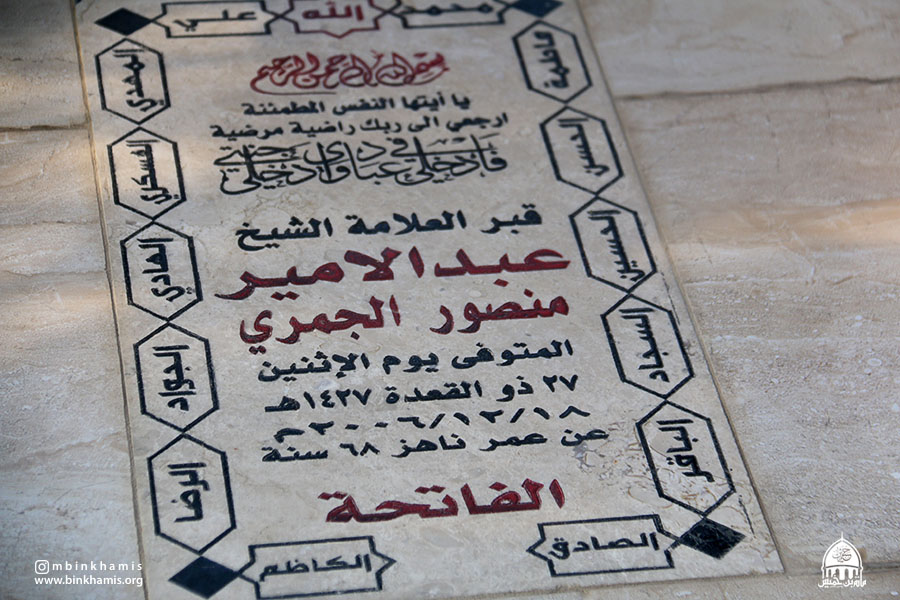 محمد
الله
علي
فاطمة
الحسن
الحسين
السجاد
الباقر
الصادق
الكاظم
الرضا
الجواد
الهادي
العسكري
المهدي
بسم الله الرحمن الرحيم
يا أيتها النفس المطمئنة
ارجعي الى ربك راضية مرضية
فادخلي في عبادي وادخلي جنتي
قبر العلامة الشيخ
عبدالامير
منصور الجمري
المتوفى يوم الإثنين
٢٧ ذو القعدة ١٤٢٧هـ
٢٠٠٦/١٢/١٨م
عن عمر ناهز ٦٨ سنة
الفاتحة
mbinkhamis
www.binkhamis.org